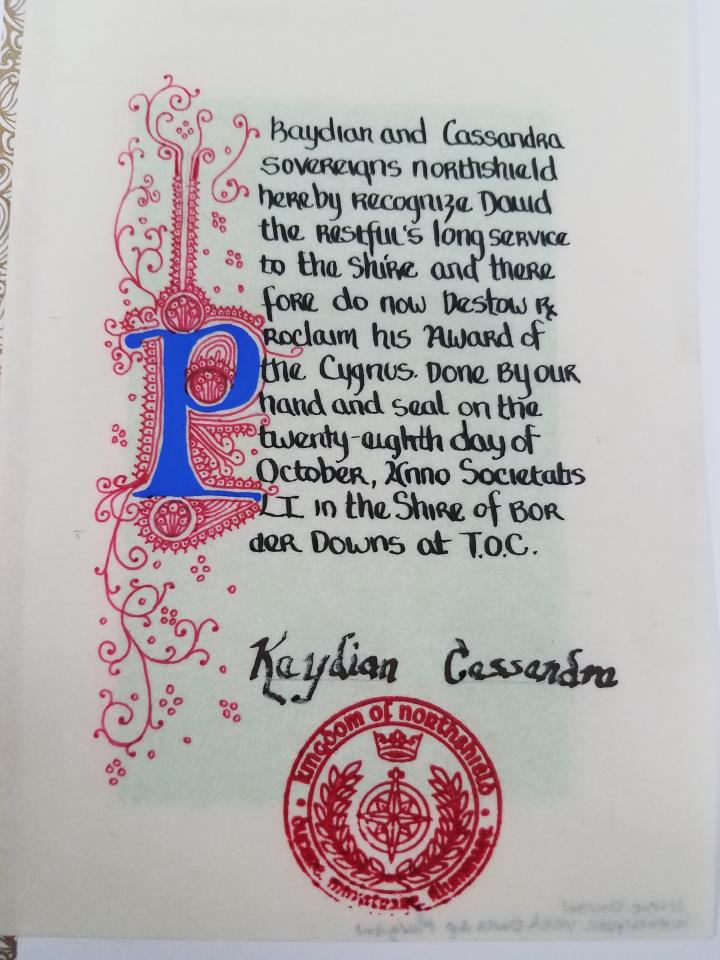 Kaydian and Cassandra
sovereigns northshield
hereby recognize Dawid
the Restful's long service
to the Shire and there
fore do now Bestow &
Proclaim his Award of
the Cygnus. Done By our
hand and seal on the
twenty-eighth day of
October, Anno Societatis
LI in the Shire of Bor
der Downs at T.O.C.
Kaydian Cassandra
kingdom of northshield
ministrare, illuminare